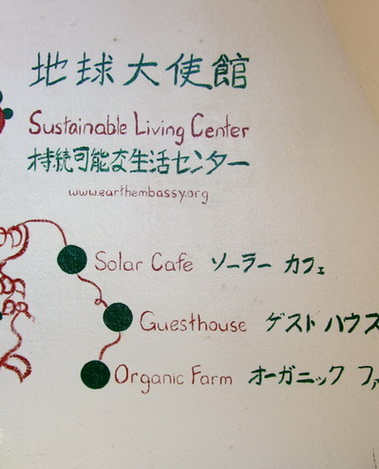 地球大使館
Sustainable Living Center
持続可能な生活センター
www.earthembassy.org
Solar Cafe ソーラー カフェ
Guesthouse ゲスト ハウス
Organic Farm オーガニック ファ